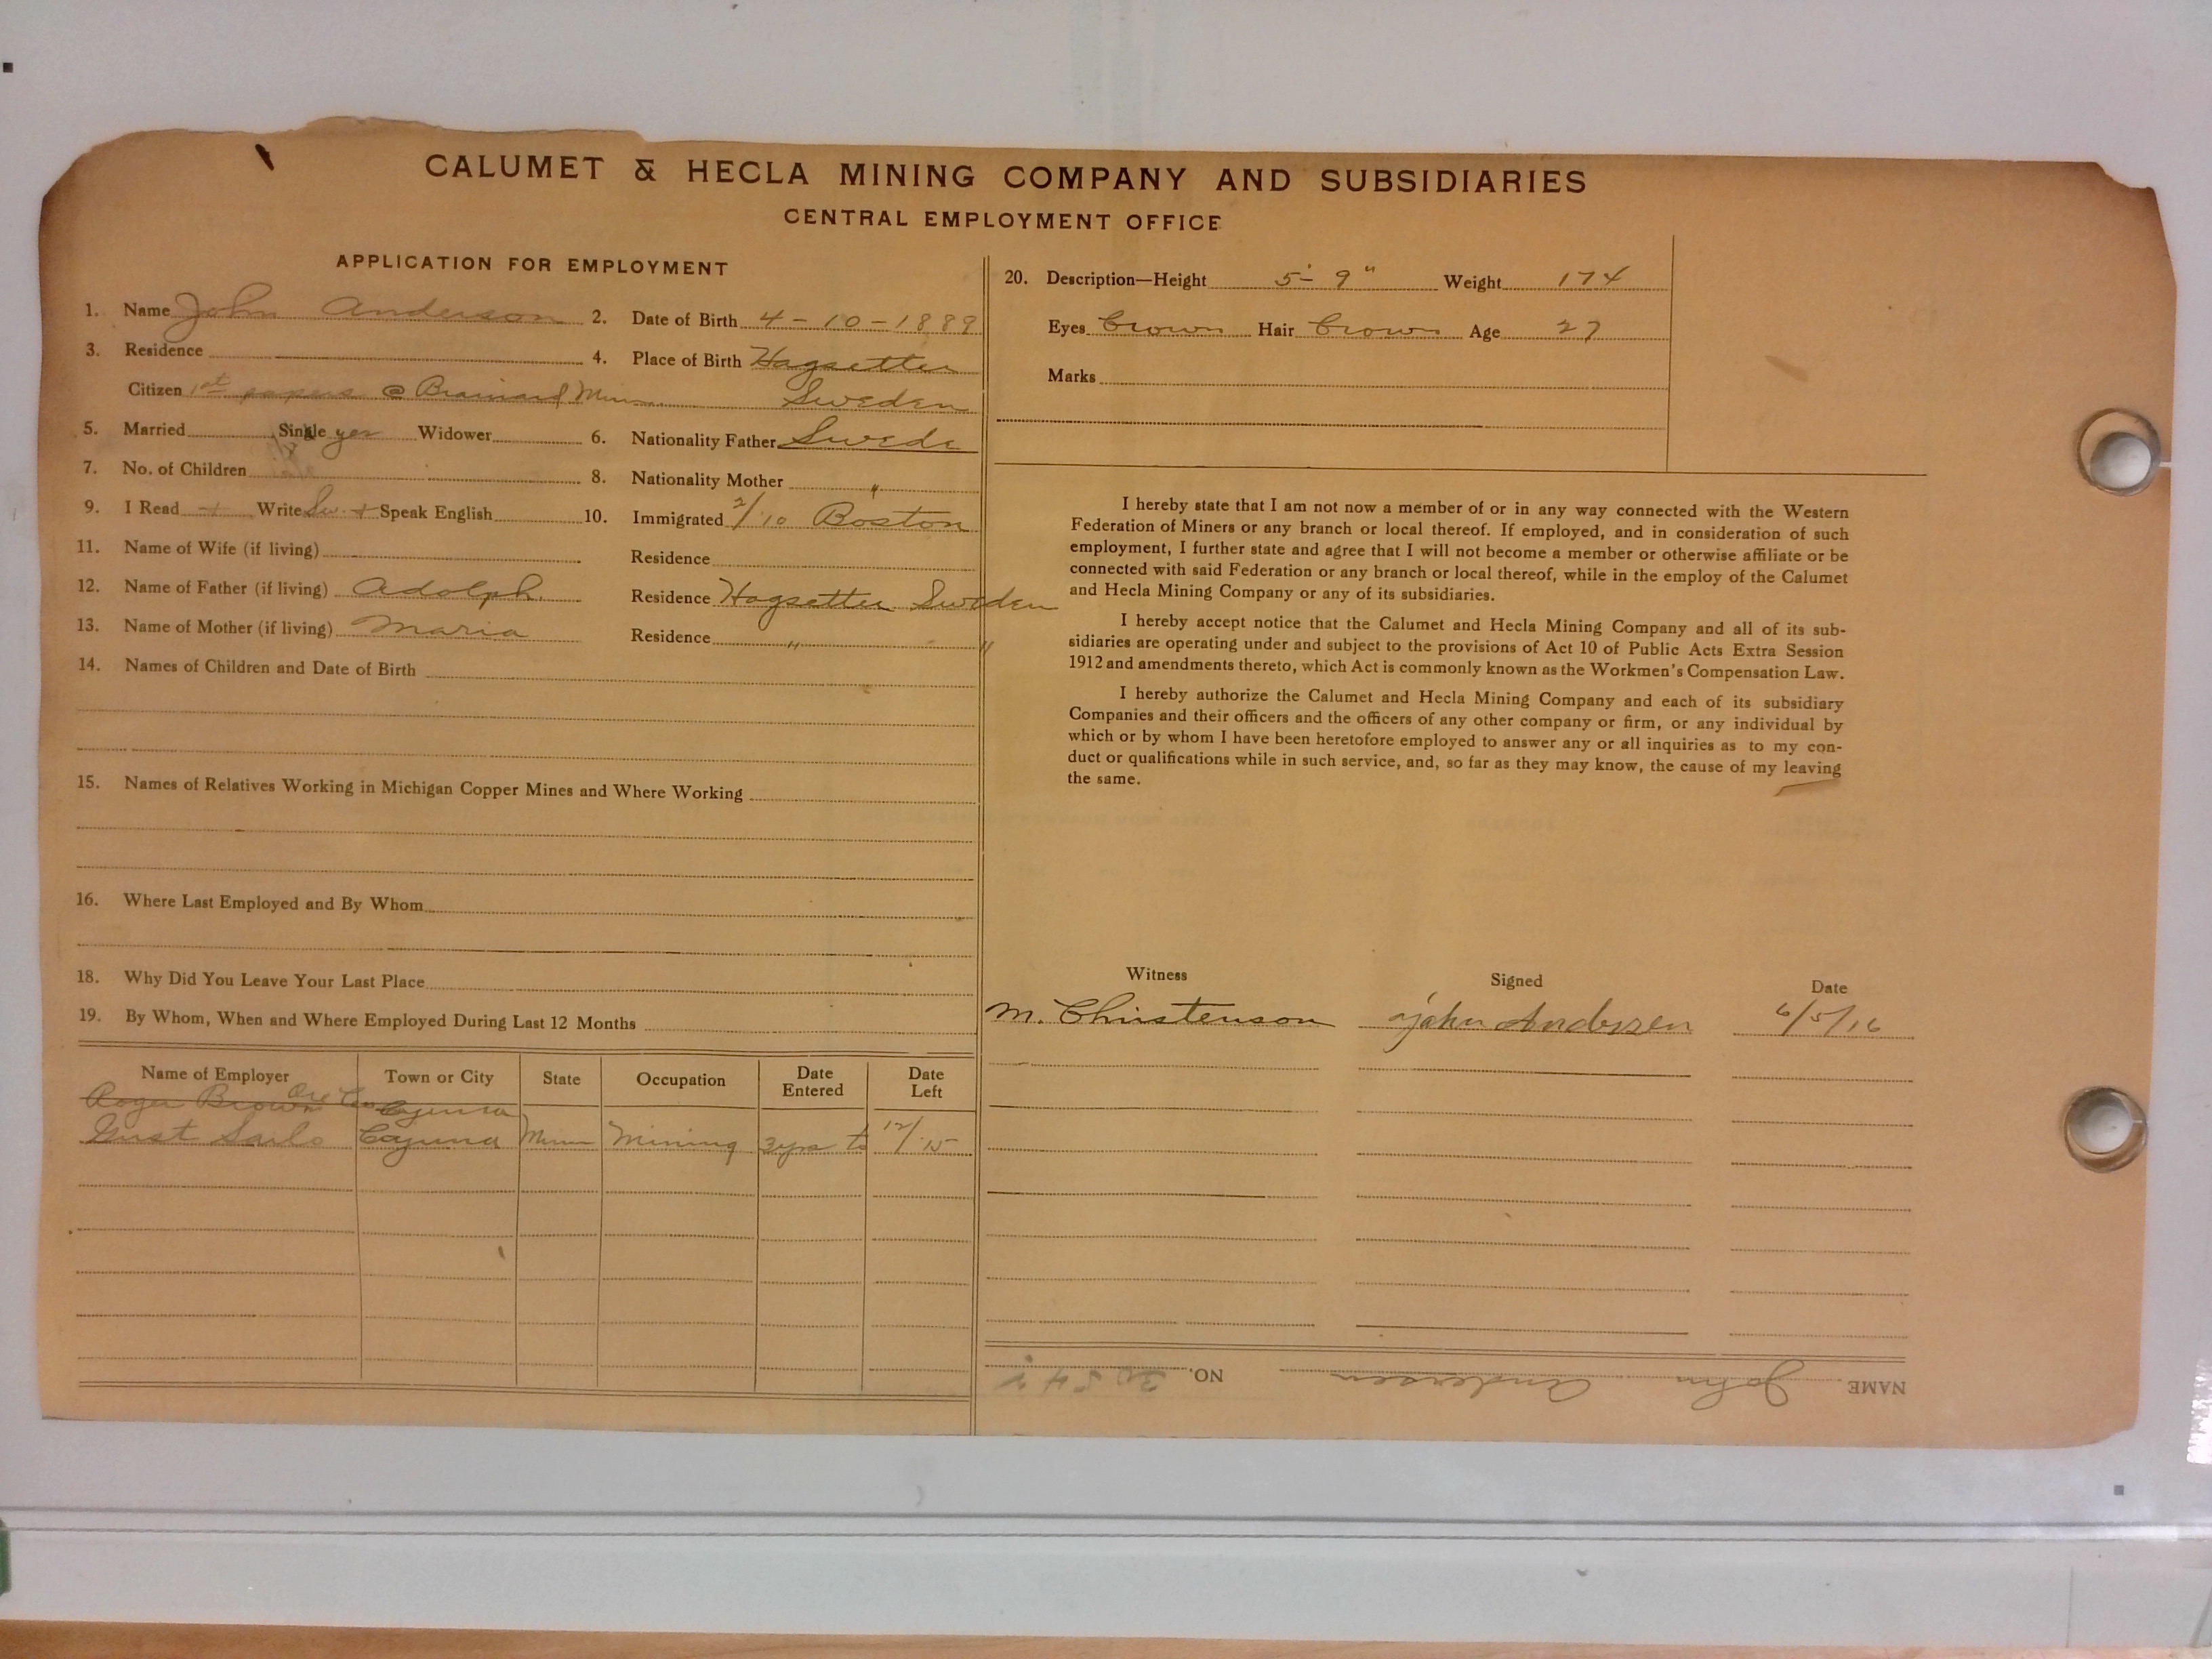 CALUMET & HECLA MINING COMPANY AND SUBSIDIARIES
CENTRAL EMPLOYMENT OFFICE
APPLICATION FOR EMPLOYMENT
1. Name John Anderson 2. Date of Birth 4-10-1889
3. Residence 4. Place of Birth Hagsetter
Citizen 1st papers @ Brainard Minn Sweden
5. Married Single yes Widower 6. Nationality Father Swede
7. No. of Children 8. Nationality Mother "
9. I Read + Write Sw. + Speak English 10. Immigrated 2/10 Boston
11. Name of Wife (if living) Residence
12. Name of Father (if living) Adolph Residence Hagsetter Sweden
13. Name of Mother (if living) Maria Residence " "
14. Names of Children and Date of Birth
15. Names of Relatives Working in Michigan Copper Mines and Where Working
16. Where Last Employed and By Whom
18. Why Did You Leave Your Last Place
19. By Whom, When and Where Employed During Last 12 Months
Name of Employer Town or City State Occupation Date Entered Date Left
Roger Brown Ore Co Cuyuna
Gust Sailo Cuyuna Minn Mining 3yrs to 12/15
20. Description—Height 5'- 9" Weight 174
Eyes brown Hair brown Age 27
Marks
I hereby state that I am not now a member of or in any way connected with the Western
Federation of Miners or any branch or local thereof. If employed, and in consideration of such
employment, I further state and agree that I will not become a member or otherwise affiliate or be
connected with said Federation or any branch or local thereof, while in the employ of the Calumet
and Hecla Mining Company or any of its subsidiaries.
I hereby accept notice that the Calumet and Hecla Mining Company and all of its sub-
sidiaries are operating under and subject to the provisions of Act 10 of Public Acts Extra Session
1912 and amendments thereto, which Act is commonly known as the Workmen's Compensation Law.
I hereby authorize the Calumet and Hecla Mining Company and each of its subsidiary
Companies and their officers and the officers of any other company or firm, or any individual by
which or by whom I have been heretofore employed to answer any or all inquiries as to my con-
duct or qualifications while in such service, and, so far as they may know, the cause of my leaving
the same.
Witness Signed Date
M. Christenson John Andersen 6/5/16
NAME John Andersen NO.